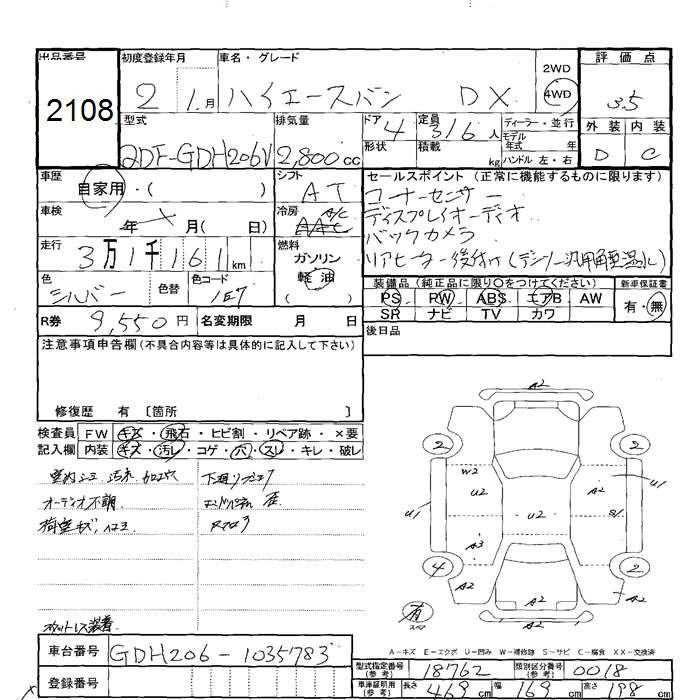 出品番号
2108
初度登録年月
2 1月
車名・グレード
ハイエースバン DX
2WD
4WD
評価点
3.5
外装 内装
D C
型式
QDF-GDH206V
排気量
2,800cc
ドア 4
形状
定員 3/6人
積載 kg
ディーラー・並行
モデル
年式 年
ハンドル 左・右
車歴
自家用・( )
シフト
AT
車検
年 月( 日)
冷房
A/C
走行
3万1千161km
燃料
ガソリン
軽油
色
シルバー
色替
色コード
1E7
R券 9,550円
名変期限 月 日
セールスポイント(正常に機能するものに限ります)
コーナーセンサー
ディスプレイオーディオ
バックカメラ
リアヒーター後付け(デンソー汎用
装備品(純正品に限り○をつけてください)
PS PW ABS エアB AW
SR ナビ TV カワ
新車保証書
有・無
後日品
注意事項申告欄(不具合内容等は具体的に記入して下さい)
修復歴 有〔箇所 〕
検査員
記入欄
FW キズ・飛石・ヒビ割・リペア跡・×要
内装 キズ・汚レ・コゲ・穴・スレ・キレ・破レ
オーディオ不調
装着
A2
2 2
W2
U2
A2
U1 U2 S1 U1
A3
4 2
A2 A2
A2
有
スペア
A-キズ E-エクボ U-凹み W-補修跡 S-サビ C-腐食 XX-交換済
車台番号
GDH206-1035783
登録番号
型式指定番号
(参考)
18762
類別区分番号
(参考)
0018
車庫証明用
(参考)
長さ 469cm 幅 169cm 高さ 198cm